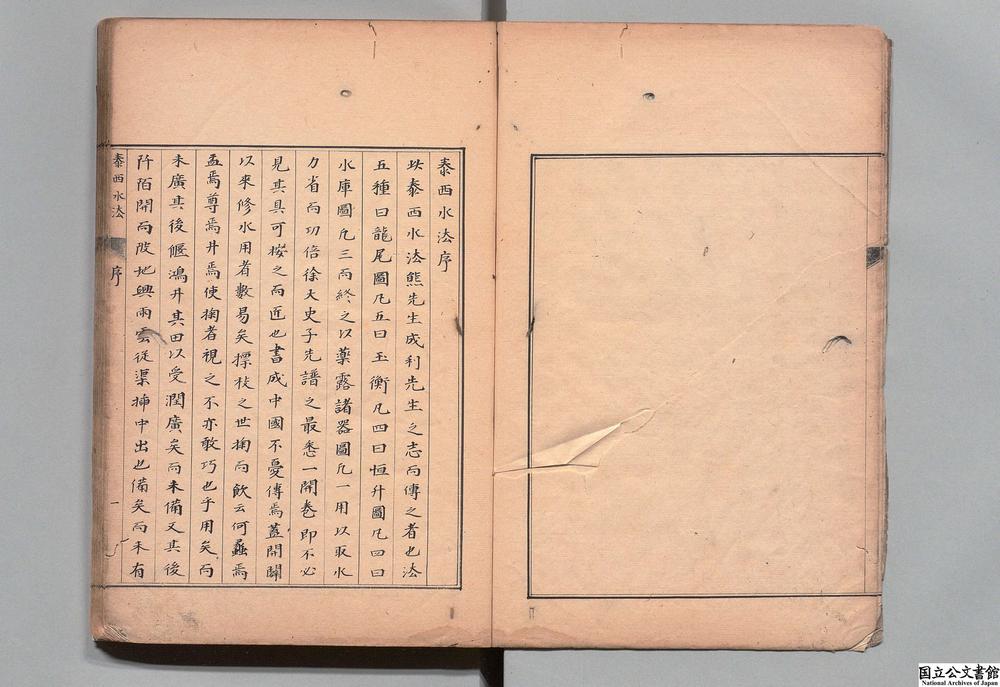 泰西水法序
此泰西水法熊先生成利先生之志而傳之者也法
五種曰龍尾圖凡五曰玉衡凡四曰恒升圖凡四曰
水庫圖凡三而終之以藥露諸器圖凡一用以取水
力省而功倍徐大史子先譜之最悉一開卷即不必
見其具可按之而匠也書成中國不憂傳焉蓋開闢
以來修水用者數易矣摽枝之世掬而飲云何蠡焉
盂焉尊焉井焉使掬者視之不亦敢巧也乎用矣而
未廣其後堰鴻井其田以受潤廣矣而未備又其後
阡陌開而陂地興雨雲從渠揷中出也備矣而未有
泰西水法 序 一
国立公文書館
National Archives of Japan